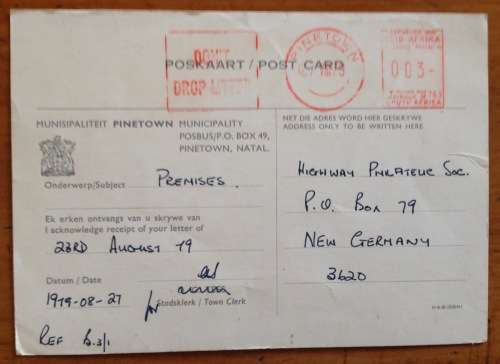 DON'T
DROP LITTER
PINETOWN
SOUTH AFRICA
003-
SOUTH AFRICA
POSKAART / POST CARD
MUNISIPALITEIT PINETOWN MUNICIPALITY
POSBUS/P.O. BOX 49,
PINETOWN, NATAL.
NET DIE ADRES WORD HIER GESKRYWE
ADDRESS ONLY TO BE WRITTEN HERE
Onderwerp/Subject PREMISES.
Ek erken ontvangs van u skrywe van
I acknowledge receipt of your letter of
23RD AUGUST 79
Datum / Date
1979-08-27
Stadsklerk / Town Clerk
REF B.3/1
HIGHWAY PHILATELIC SOC.
P.O. BOX 79
NEW GERMANY
3620